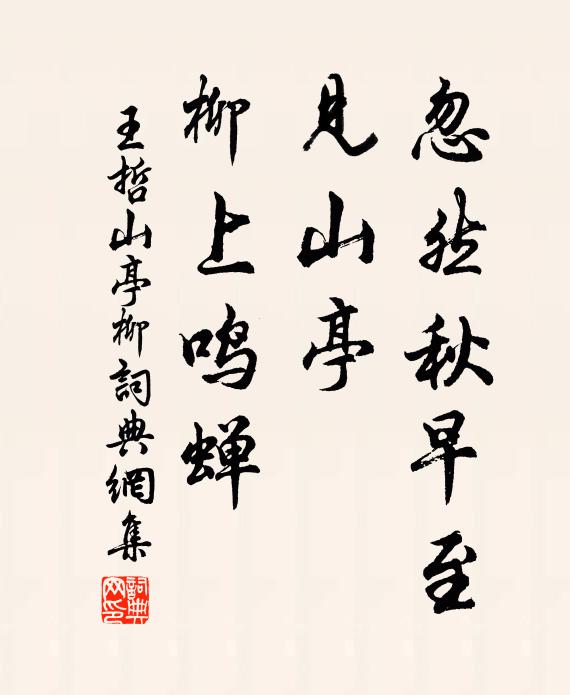 忽然秋早至
見山亭
柳上鸣蝉
王哲山亭柳詞典網集
詞典
网印